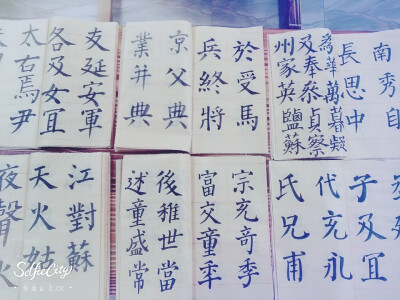 南秀自
長思中
為華萬暮
及奉泰貞察
州家英鹽蘇
於受馬
兵終將
京父典
業并典
友延安軍
各及女宜
太右焉尹
子及宜
代充永
氏兄甫
宗充奇季
富交童年
後稚世當
述童盛常
江對蘇
天火姑
夜聲火
SelfieCity